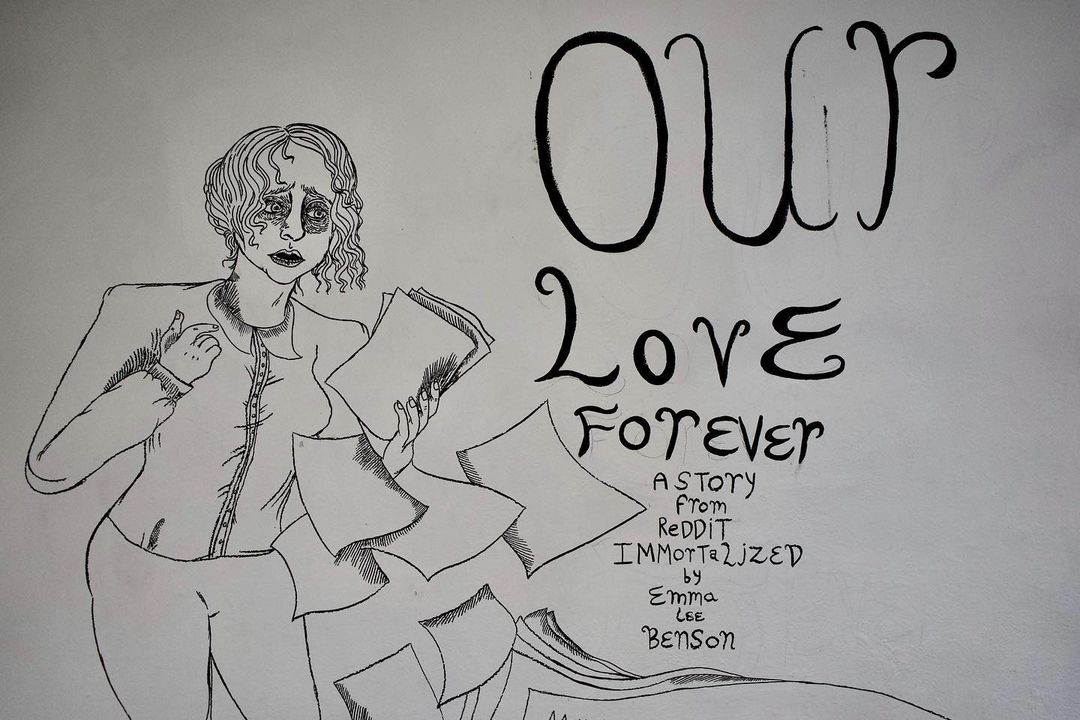 OUr
LovE
ForEVEr
A STOrY
From
ReDDiT
IMMorTaLiZED
by
Emma
LEE
BENSON